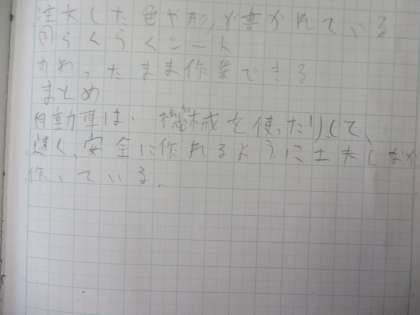 注文した色や形が書かれている
回らくらくシート
すわったまま作業できる
まとめ
自動車は、機械を使ったりして、
速く、安全に作れるように工夫しなが
作っている。